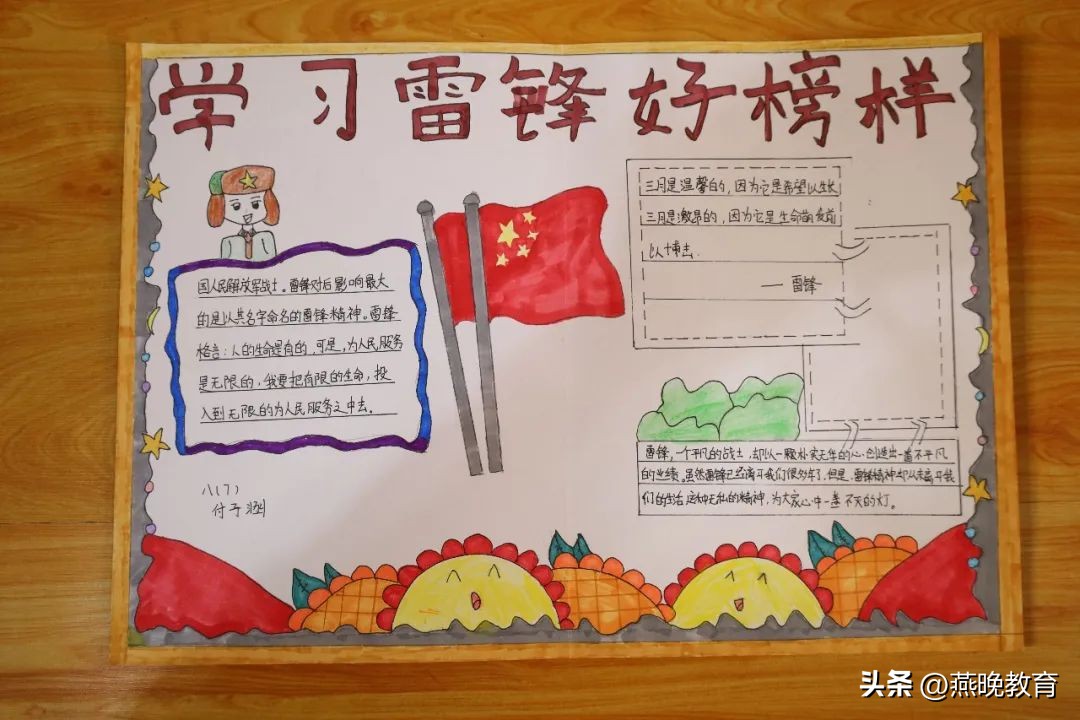 学习雷锋好榜样
国人民解放军战士。雷锋对后影响最大
的是以其名字命名的雷锋精神。雷锋
格言：人的生命是有的，可是，为人民服务
是无限的，我要把有限的生命，投
入到无限的为人民服务之中去。
八(7)
付予涵
三月是温馨的，因为它是希望以生长
三月是激昂的，因为它是生命的
以搏击.
— 雷锋
雷锋，一个平凡的战士，却以一颗朴实无华的心，创造出一番不平凡
的业绩。虽然雷锋已经离开我们很多年了，但是，雷锋精神却从未离开我
们的生活，这种无私的精神，为大家心中一盏不灭的灯。
头条 @燕晚教育